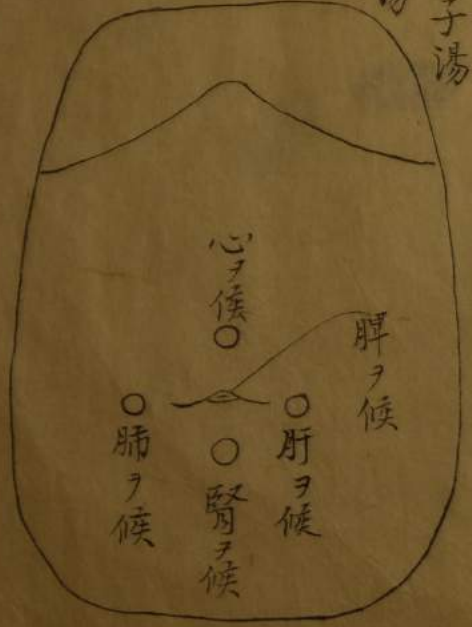 子湯
湯
脾ヲ候
肝ヲ候
心ヲ候
腎ヲ候
肺ヲ候